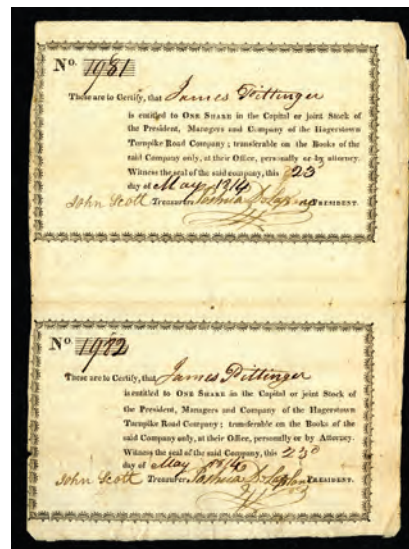 No. 1981
These are to Certify, that James Pittinger
is entitled to ONE SHARE in the Capital or joint Stock of
the President, Managers and Company of the Hagerstown
Turnpike Road Company; transferable on the Books of the
said Company only, at their Office, personally or by attorney.
Witness the seal of the said company, this 23
day of May 1814
John Scott Treasurer. Joshua PRESIDENT.
No. 1982
These are to Certify, that James Pittinger
is entitled to ONE SHARE in the Capital or joint Stock of
the President, Managers and Company of the Hagerstown
Turnpike Road Company; transferable on the Books of the
said Company only, at their Office, personally or by Attorney.
Witness the seal of the said Company, this 23
day of May
John Scott Treasurer. Joshua PRESIDENT.